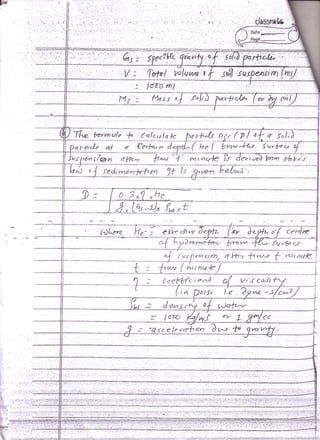 classmate
Date
Page
Gs : specific gravity of solid particles
V : Total volume of soil suspension (ml)
= 1000 ml
Ms : Mass of solid particles (or dry soil)
The formula to calculate particle size (D) of a solid
particle at a certain depth (He) from the surface of
suspension after time 't' minute is derived from stoke's
law of sedimentation. It is given below.
D = 0.3 η × He
g (Gs-1) × ρw × t
where He = effective depth (or depth of centre
of hydrometer from the surface
of suspension, after time t minute
t : time (minute)
η : coefficient of viscosity
(in poise i.e dyne-s/cm²)
ρw = density of water
= 1000 kg/m3 or 1 gm/cc
g = acceleration due to gravity.